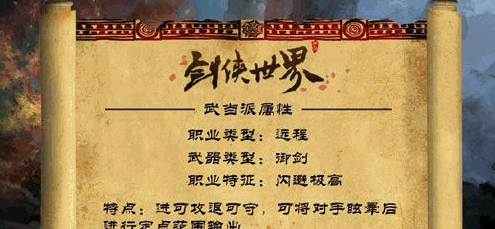 剑侠世界
武当派属性
职业类型：远程
武器类型：御剑
职业特征：闪避极高
特点：进可攻退可守，可将对手眩晕后
进行定点范围输出